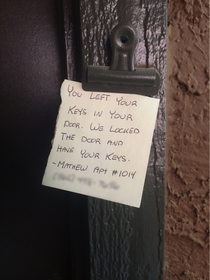 You LEFT YOUR
KEYS IN YOUR
DOOR. WE LOCKED
THE DOOR AND
HAVE YOUR KEYS.
-MATHEW APT #1014